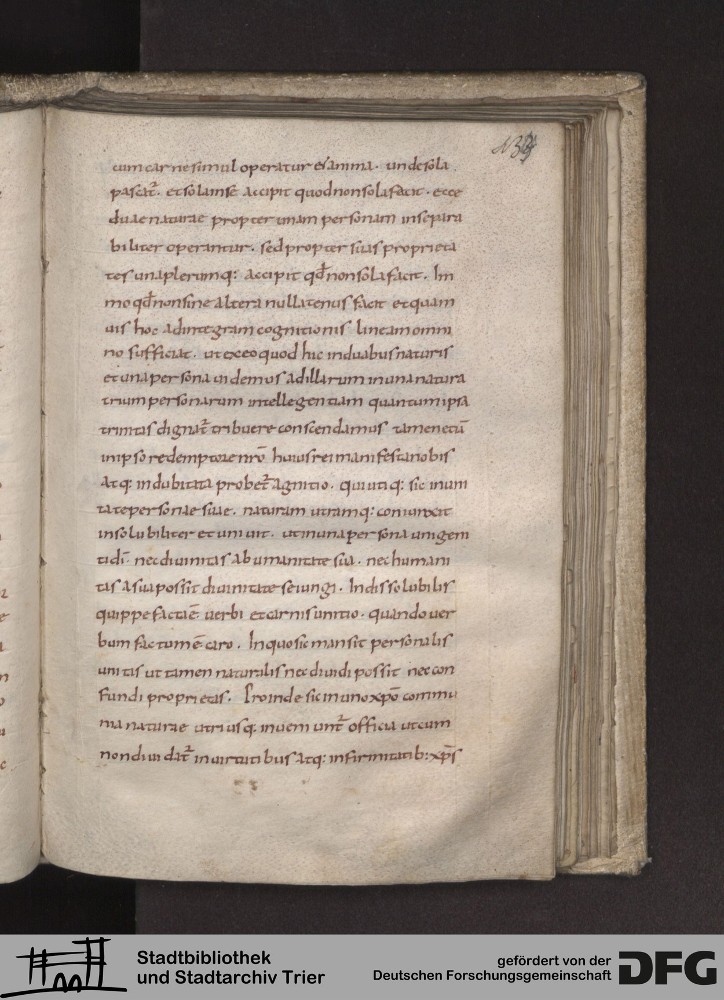 134
cum carne simul operatur & anima. unde sola
pascat̄. et sola in se accipit quod non sola facit. ecce
duae naturae propter unam personam insepara
biliter operantur. sed propter suas proprieta
tes una plerumq: accipit qđ non sola facit. Im
mo qđ non sine altera nullatenus facit et quam
uis hoc ad integram cognitionis lineam omni
no sufficiat. ut ex eo quod hic in duabus naturis
et una persona uidemus ad illarum in una natura
trium personarum intellegentiam quantum ipsa
trinitas dignat̄ tribuere conscendamus tamen etiā
in ipso redemptore nr̄o huius rei manifesta nobis
atq: indubitata probet̄ agnitio. qui utiq: sic in uni
tate personae suae. naturam utramq: coniunxit
insolubiliter et uniuit. ut in una persona unigeni
ti dī. nec diuinitas ab umanitate sua. nec humani
tas a sua possit diuinitate seiungi. Indissolubilis
quippe facta ē uerbi et carnis unitio. quando uer
bum factum ē caro. In quo sic mansit personalis
unitas ut tamen naturalis nec diuidi possit nec con
fundi proprietas. Proinde sic in uno xp̄o commu
nia naturae utriusq. inueniunt̄ officia ut cum
non diuidat̄ in uirtutibus atq: infirmitatib: xp̄s
Stadtbibliothek
und Stadtarchiv Trier
gefördert von der
Deutschen Forschungsgemeinschaft
DFG